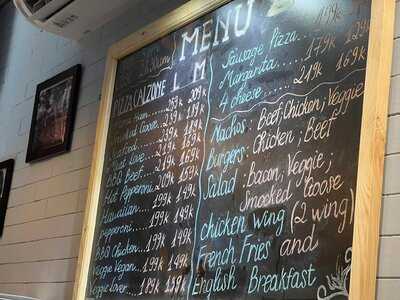 MENU
PIZZA CALZONE L M
Ham.... 263k 209k
Smoked Goose.. 239k 189k
Meat Love.... 239k 189k
BBQ Beef.... 219k 169k
Hot Pepperoni 209k 159k
Hawaiian..... 199k 149k
pepperoni.... 199k 149k
BBQ Chicken.. 199k 149k
Veggie Vegan.. 199k 149k
Veggie Lover.. 189k 139k
Sausage Pizza.... 199k 149k
Margarita.... 179k 129k
4 cheese...... 219k 169k
Nachos: Beef; Chicken; Veggie
Burgers: Chicken; Beef
Salad: bacon; Veggie;
Smocked Goose
chicken wing (2 wing)
French Fries and
English Breakfast